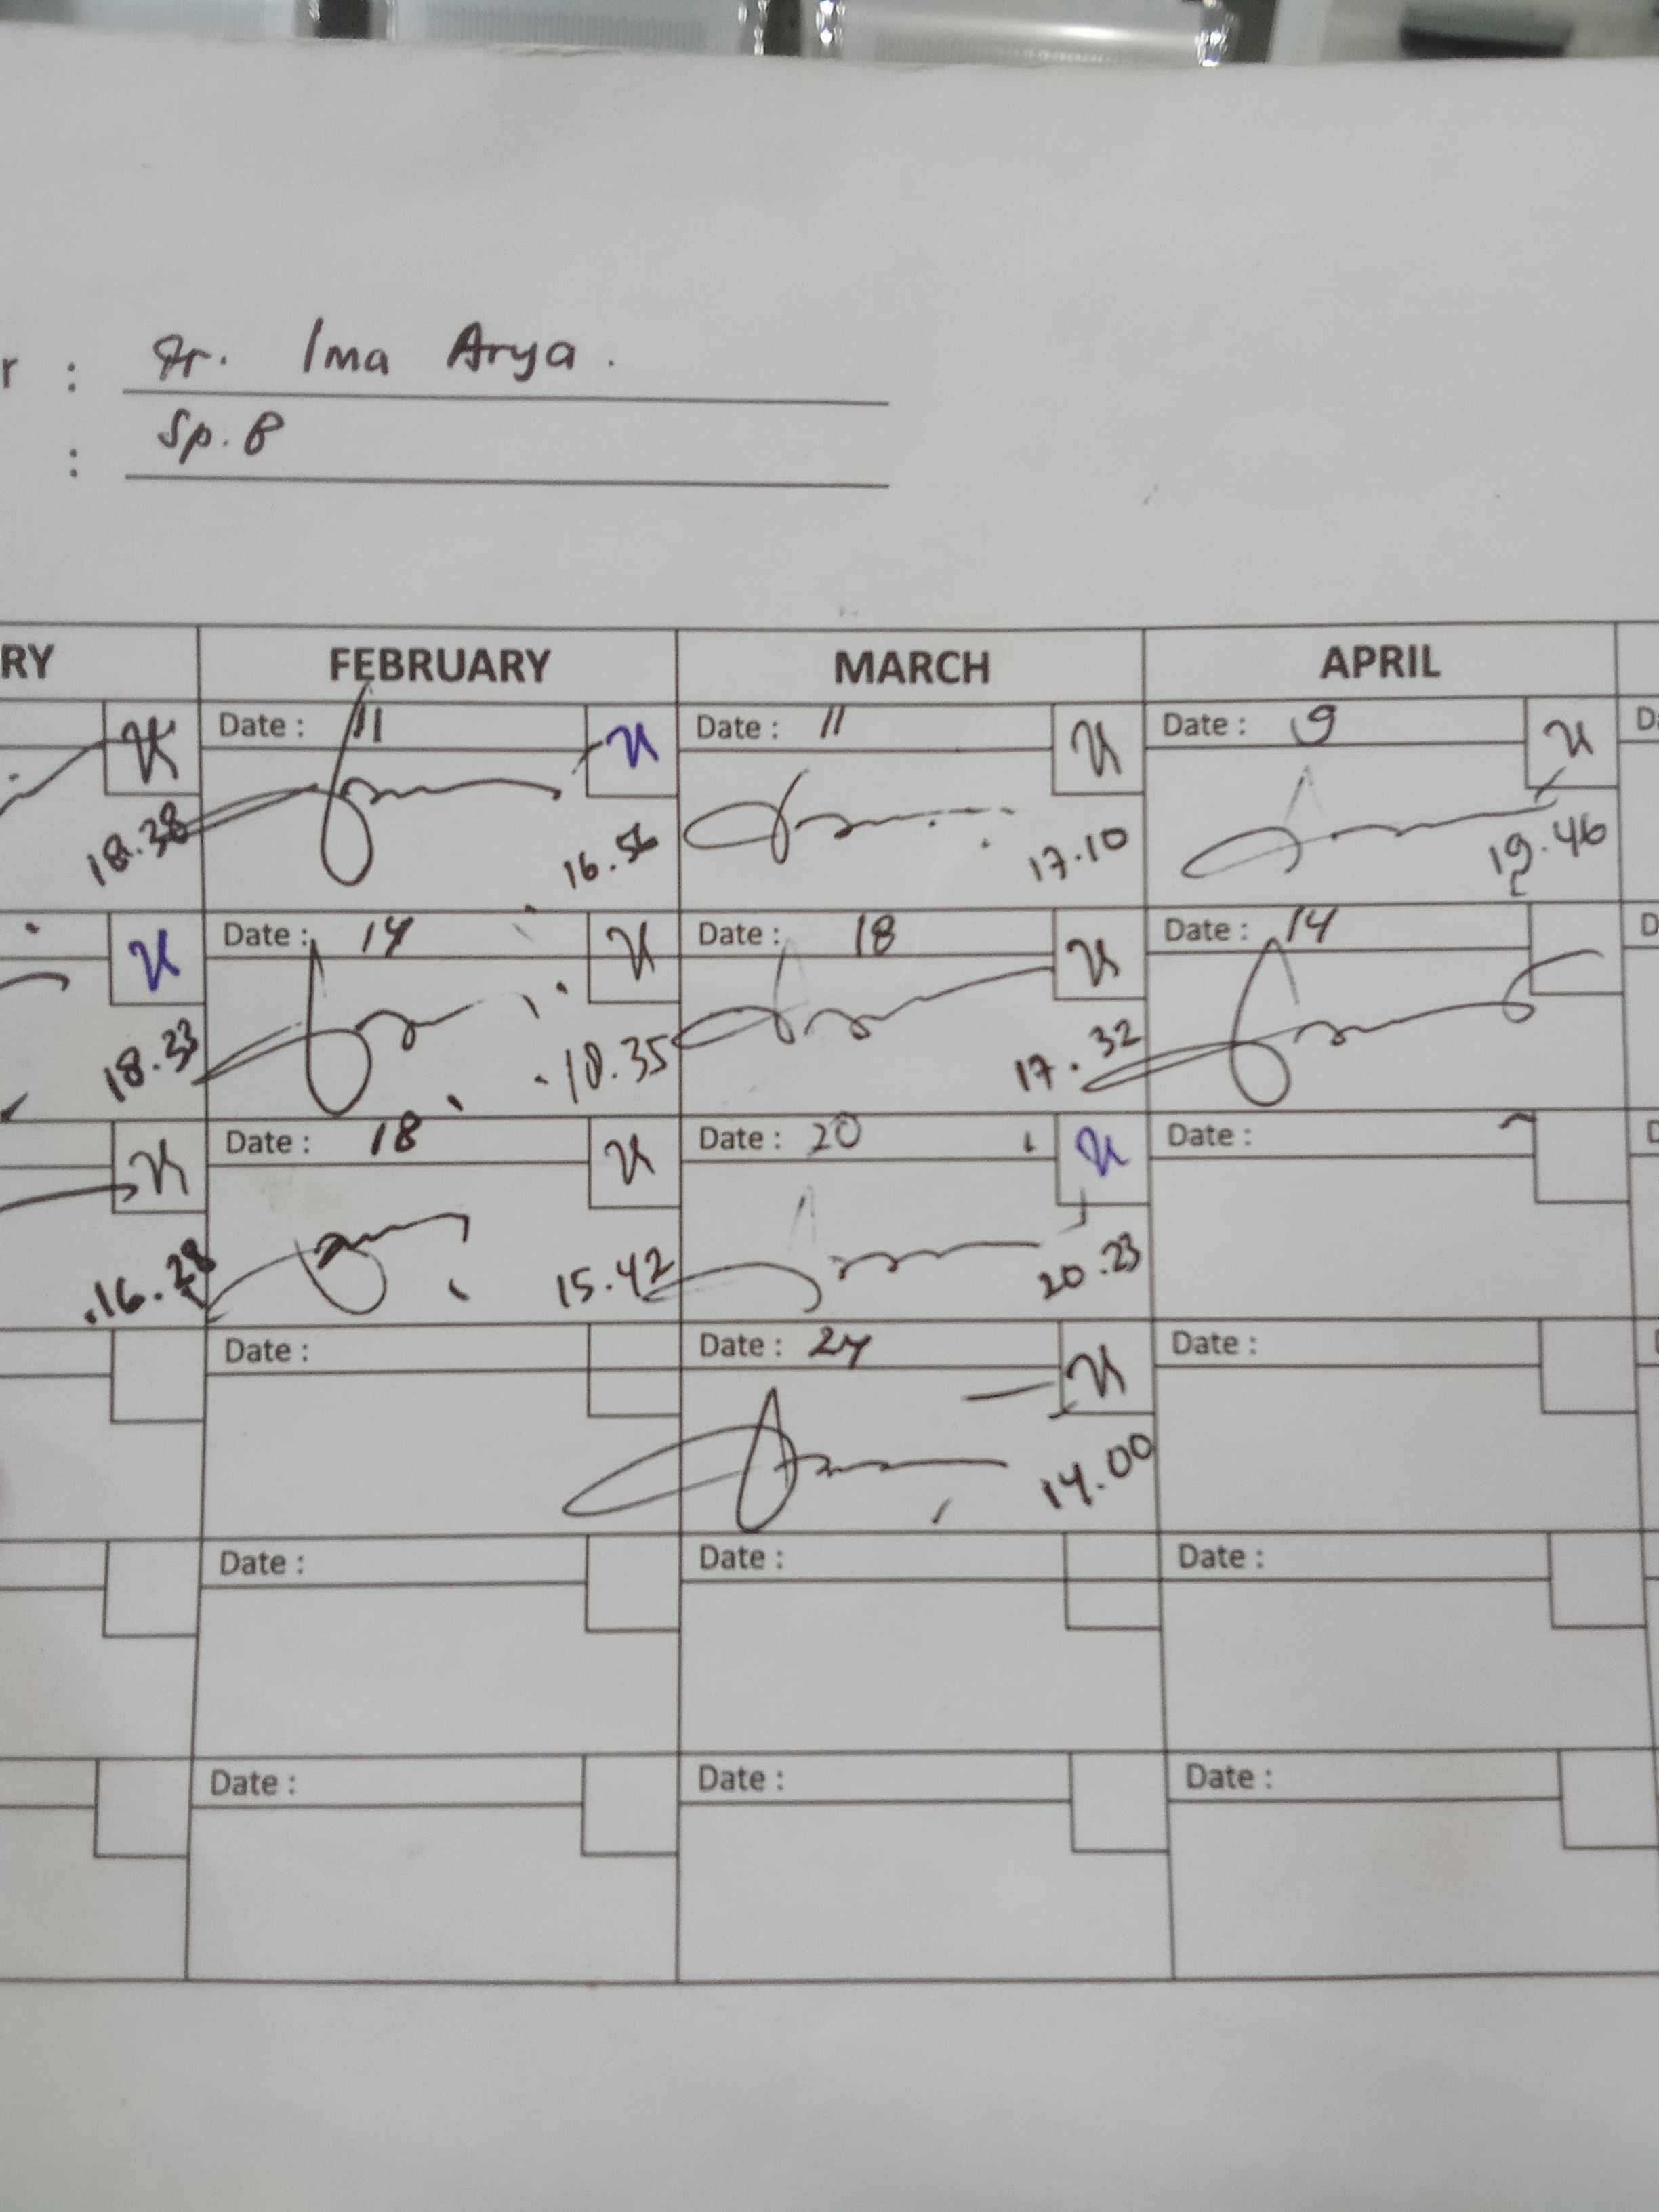 r : Dr. Ima Arya.
: Sp. B
RY FEBRUARY MARCH APRIL
Date : 11 Date : 11 Date : 9 Da
18.38 16.56 17.10 19.46
Date : 14 Date : 18 Date : 14 D
18.33 18.35 17.32
Date : 18 Date : 20 Date : D
16.28 15.42 20.23
Date : Date : 24 Date :
14.00
Date : Date : Date :
Date : Date : Date :